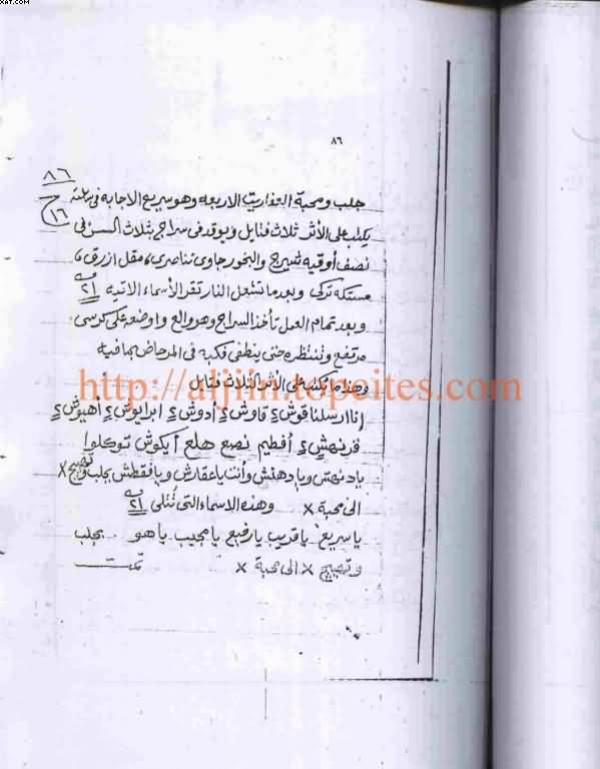 XAT.COM
٨٦
٨٦
ح
١٦
جلب ومحبة العفاريت الاربعه وهو سريع الاجابه فى
يكتب على الأثر ثلاث فتايل ويوقد فى سراج بثلاث السن فى
نصف أوقيه شيرج والبخور جاوى تناصرى، مقل ازرق،
مستكه تركى وبعد ما تشعل النار تقرا الأسماء الاتيه ٢١
وبعد تمام العمل تأخذ السراج وهو والع واوضعه على كرسى
مرتفع وتنتظره حتى ينطفى فكبه فى المرحاض بما فيه
وهذا ما تكتبه على الأثر الثلاث فتايل
http://aljiin.topcites.com
انا ارسلنا قوش ٤ قاوش ٤ أدوش ٤ ابرايوش ٤ أهيوش ٤
قرنهش ٤ أفطيم نصع هلع أيكوش توكلوا
يا دنهش ويا دهنش وأنت يا عقارش ويا فقطش بجلب وتهييج X
الى محبة X وهذه الاسماء التى تتلى ٢١
يا سريع يا قريب يا رفيع يا مجيب يا هو بجلب
وتهييج X الى محبة X تمت